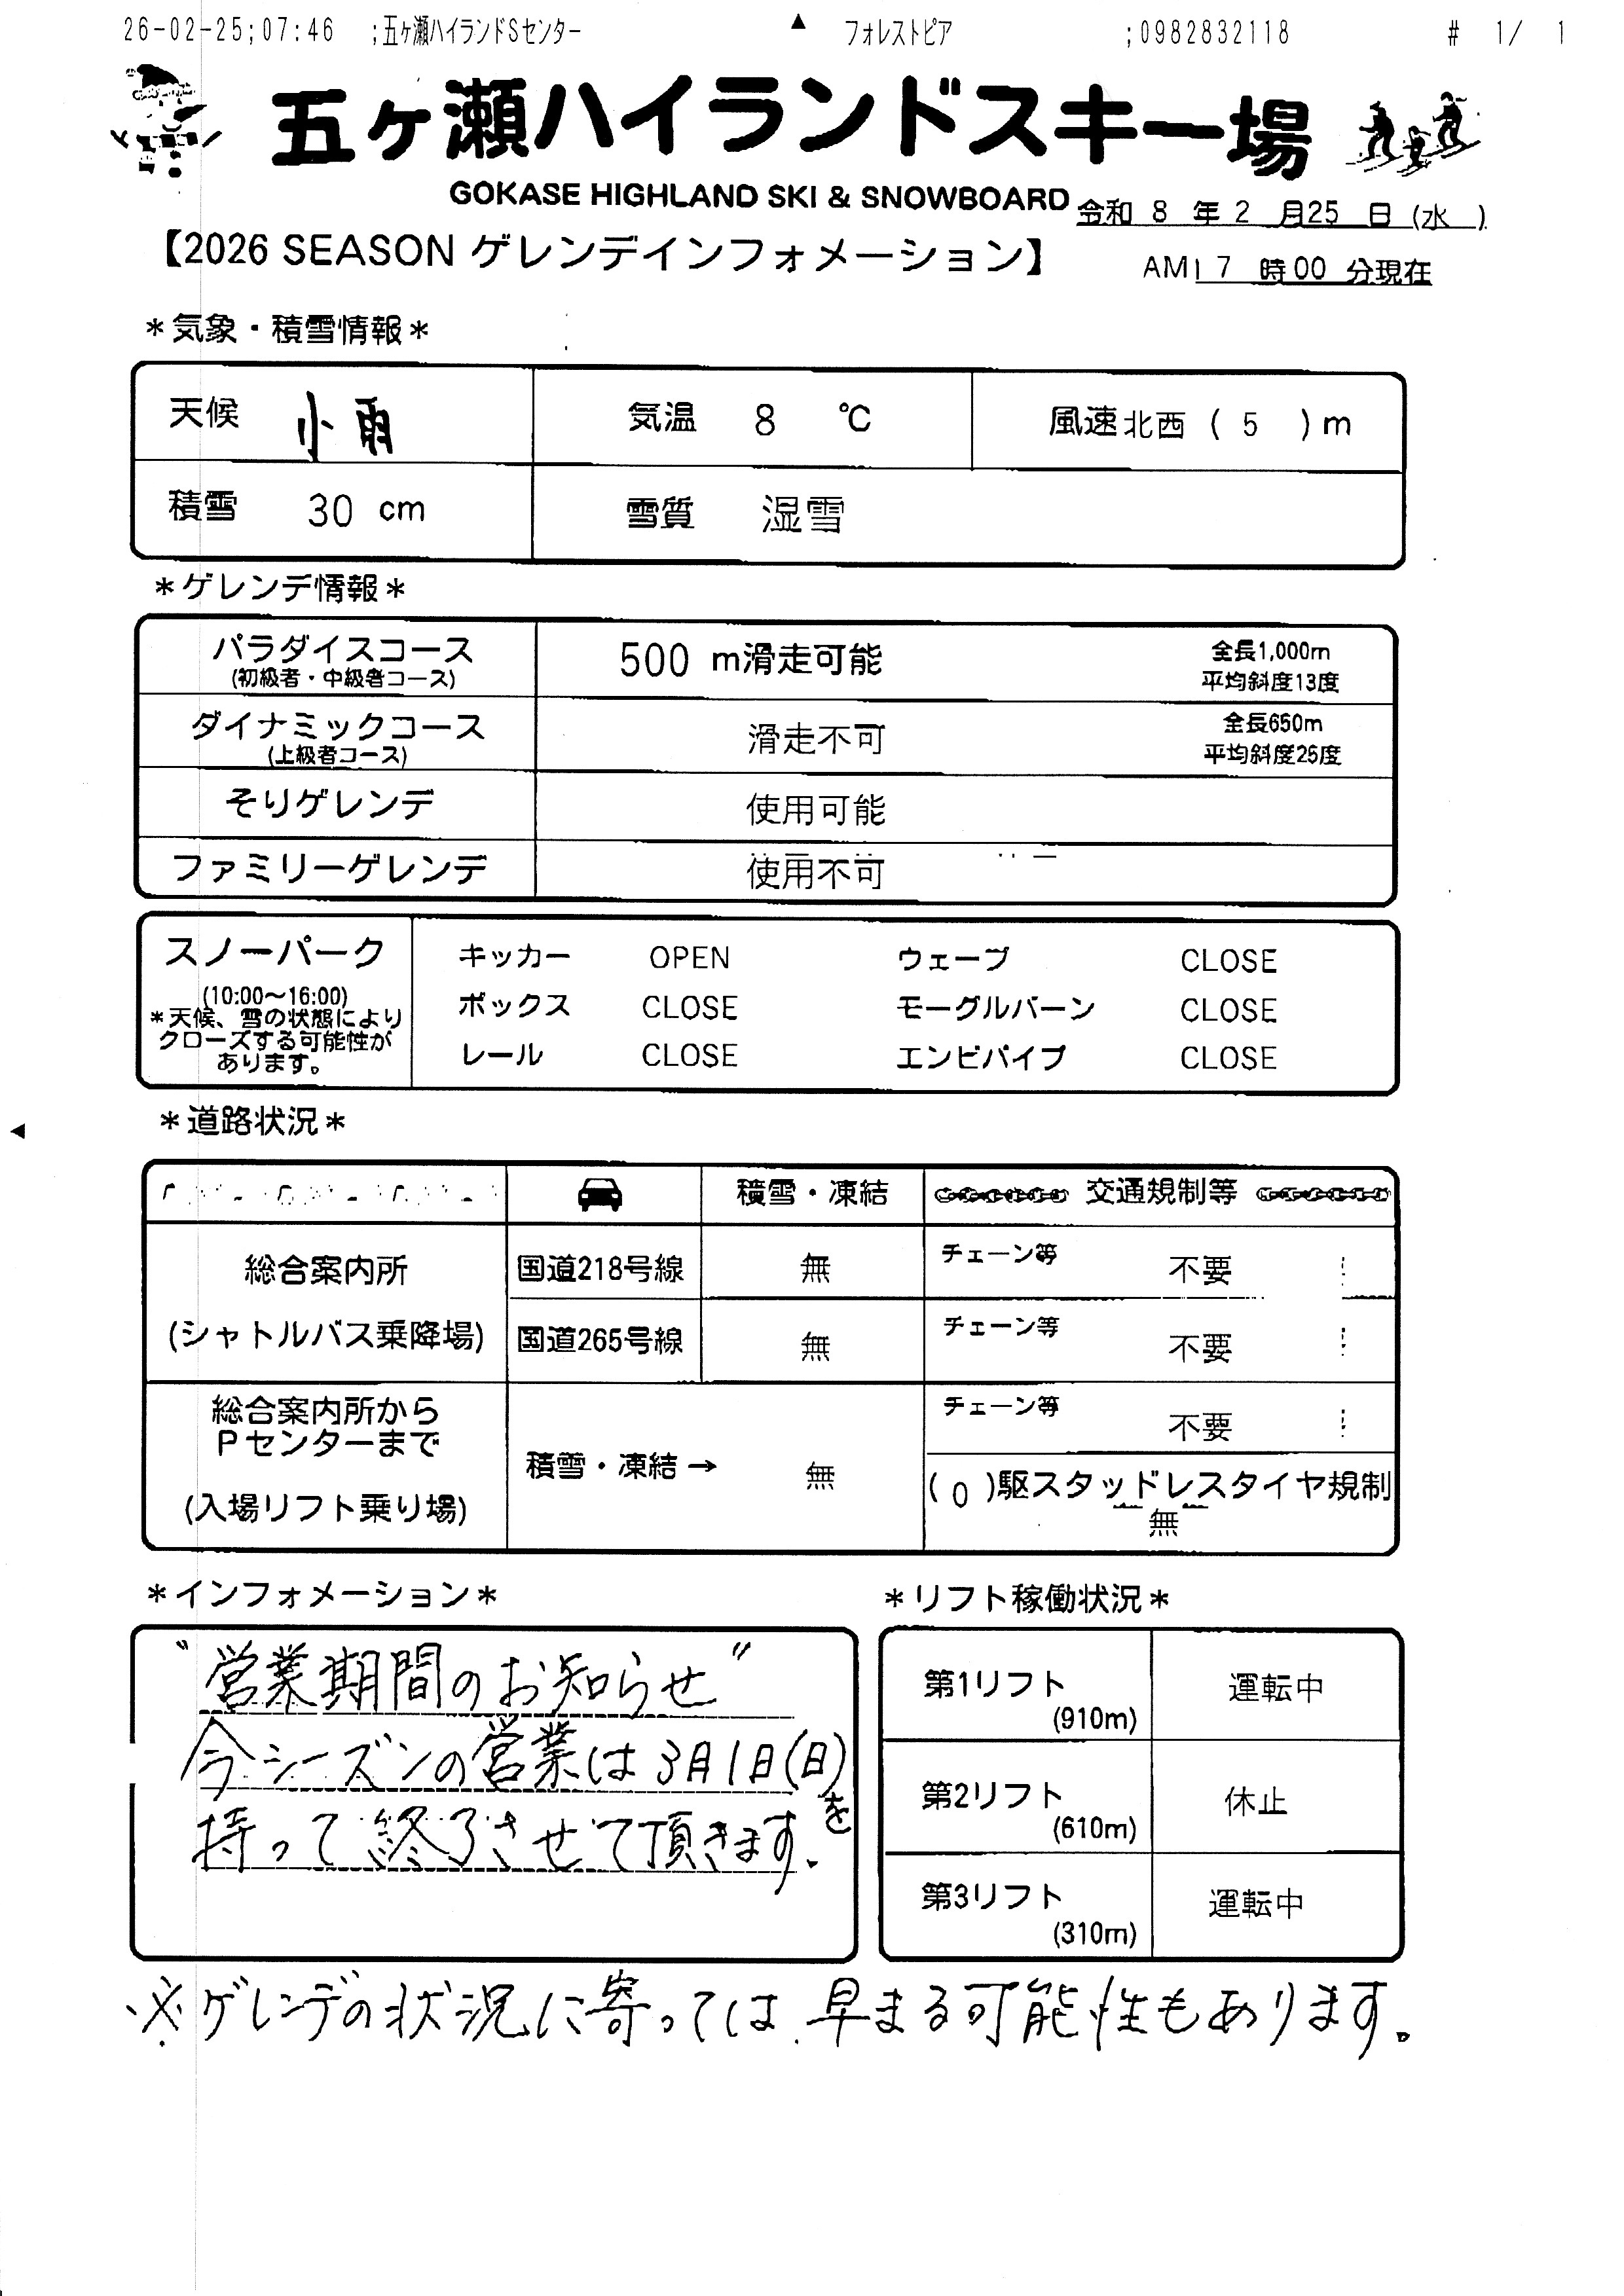 26-02-25;07:46 ;五ヶ瀬ハイランドSセンター フォレストピア ;0982832118 # 1/ 1
五ヶ瀬ハイランドスキー場
GOKASE HIGHLAND SKI & SNOWBOARD
令和 8 年 2 月25 日 (水 )
【2026 SEASON ゲレンデインフォメーション】
AM 7 時00 分現在
*気象・積雪情報*
天候 小雨 気温 8 ℃ 風速 北西 ( 5 )m
積雪 30 cm 雪質 湿雪
*ゲレンデ情報*
パラダイスコース 500 m滑走可能 全長1,000m
(初級者・中級者コース) 平均斜度13度
ダイナミックコース 滑走不可 全長650m
(上級者コース) 平均斜度25度
そりゲレンデ 使用可能
ファミリーゲレンデ 使用不可
スノーパーク
(10:00~16:00)
*天候、雪の状態により
クローズする可能性が
あります。
キッカー OPEN ウェーブ CLOSE
ボックス CLOSE モーグルバーン CLOSE
レール CLOSE エンビパイプ CLOSE
*道路状況*
積雪・凍結 交通規制等
総合案内所
(シャトルバス乗降場)
国道218号線 無 チェーン等 不要
国道265号線 無 チェーン等 不要
総合案内所から
Pセンターまで
(入場リフト乗り場)
積雪・凍結→ 無 チェーン等 不要
( 0 )駆スタッドレスタイヤ規制
無
*インフォメーション*
"営業期間のお知らせ"
今シーズンの営業は3月1日(日)を
持って終了させて頂きます.
*リフト稼働状況*
第1リフト 運転中
(910m)
第2リフト 休止
(610m)
第3リフト 運転中
(310m)
※ゲレンデの状況に寄っては、早まる可能性もあります。